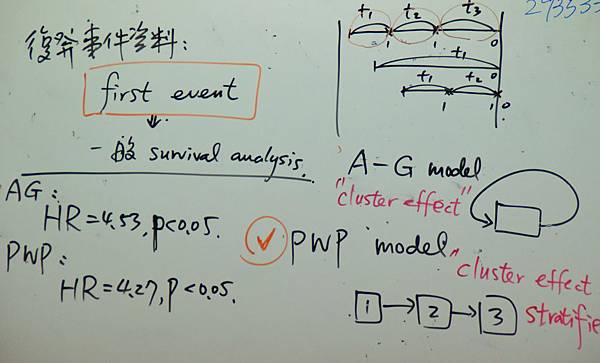 復發事件資料:
first event
一般 survival analysis.
AG:
HR=4.53, p<0.05.
PWP:
HR=4.27, P<0.05.
t1 t2 t3
1 1 0
t1
0
t1 t2
1 1 0
A-G model
"cluster effect"
✓ PWP model
"cluster effect
stratifie
1 → 2 → 3